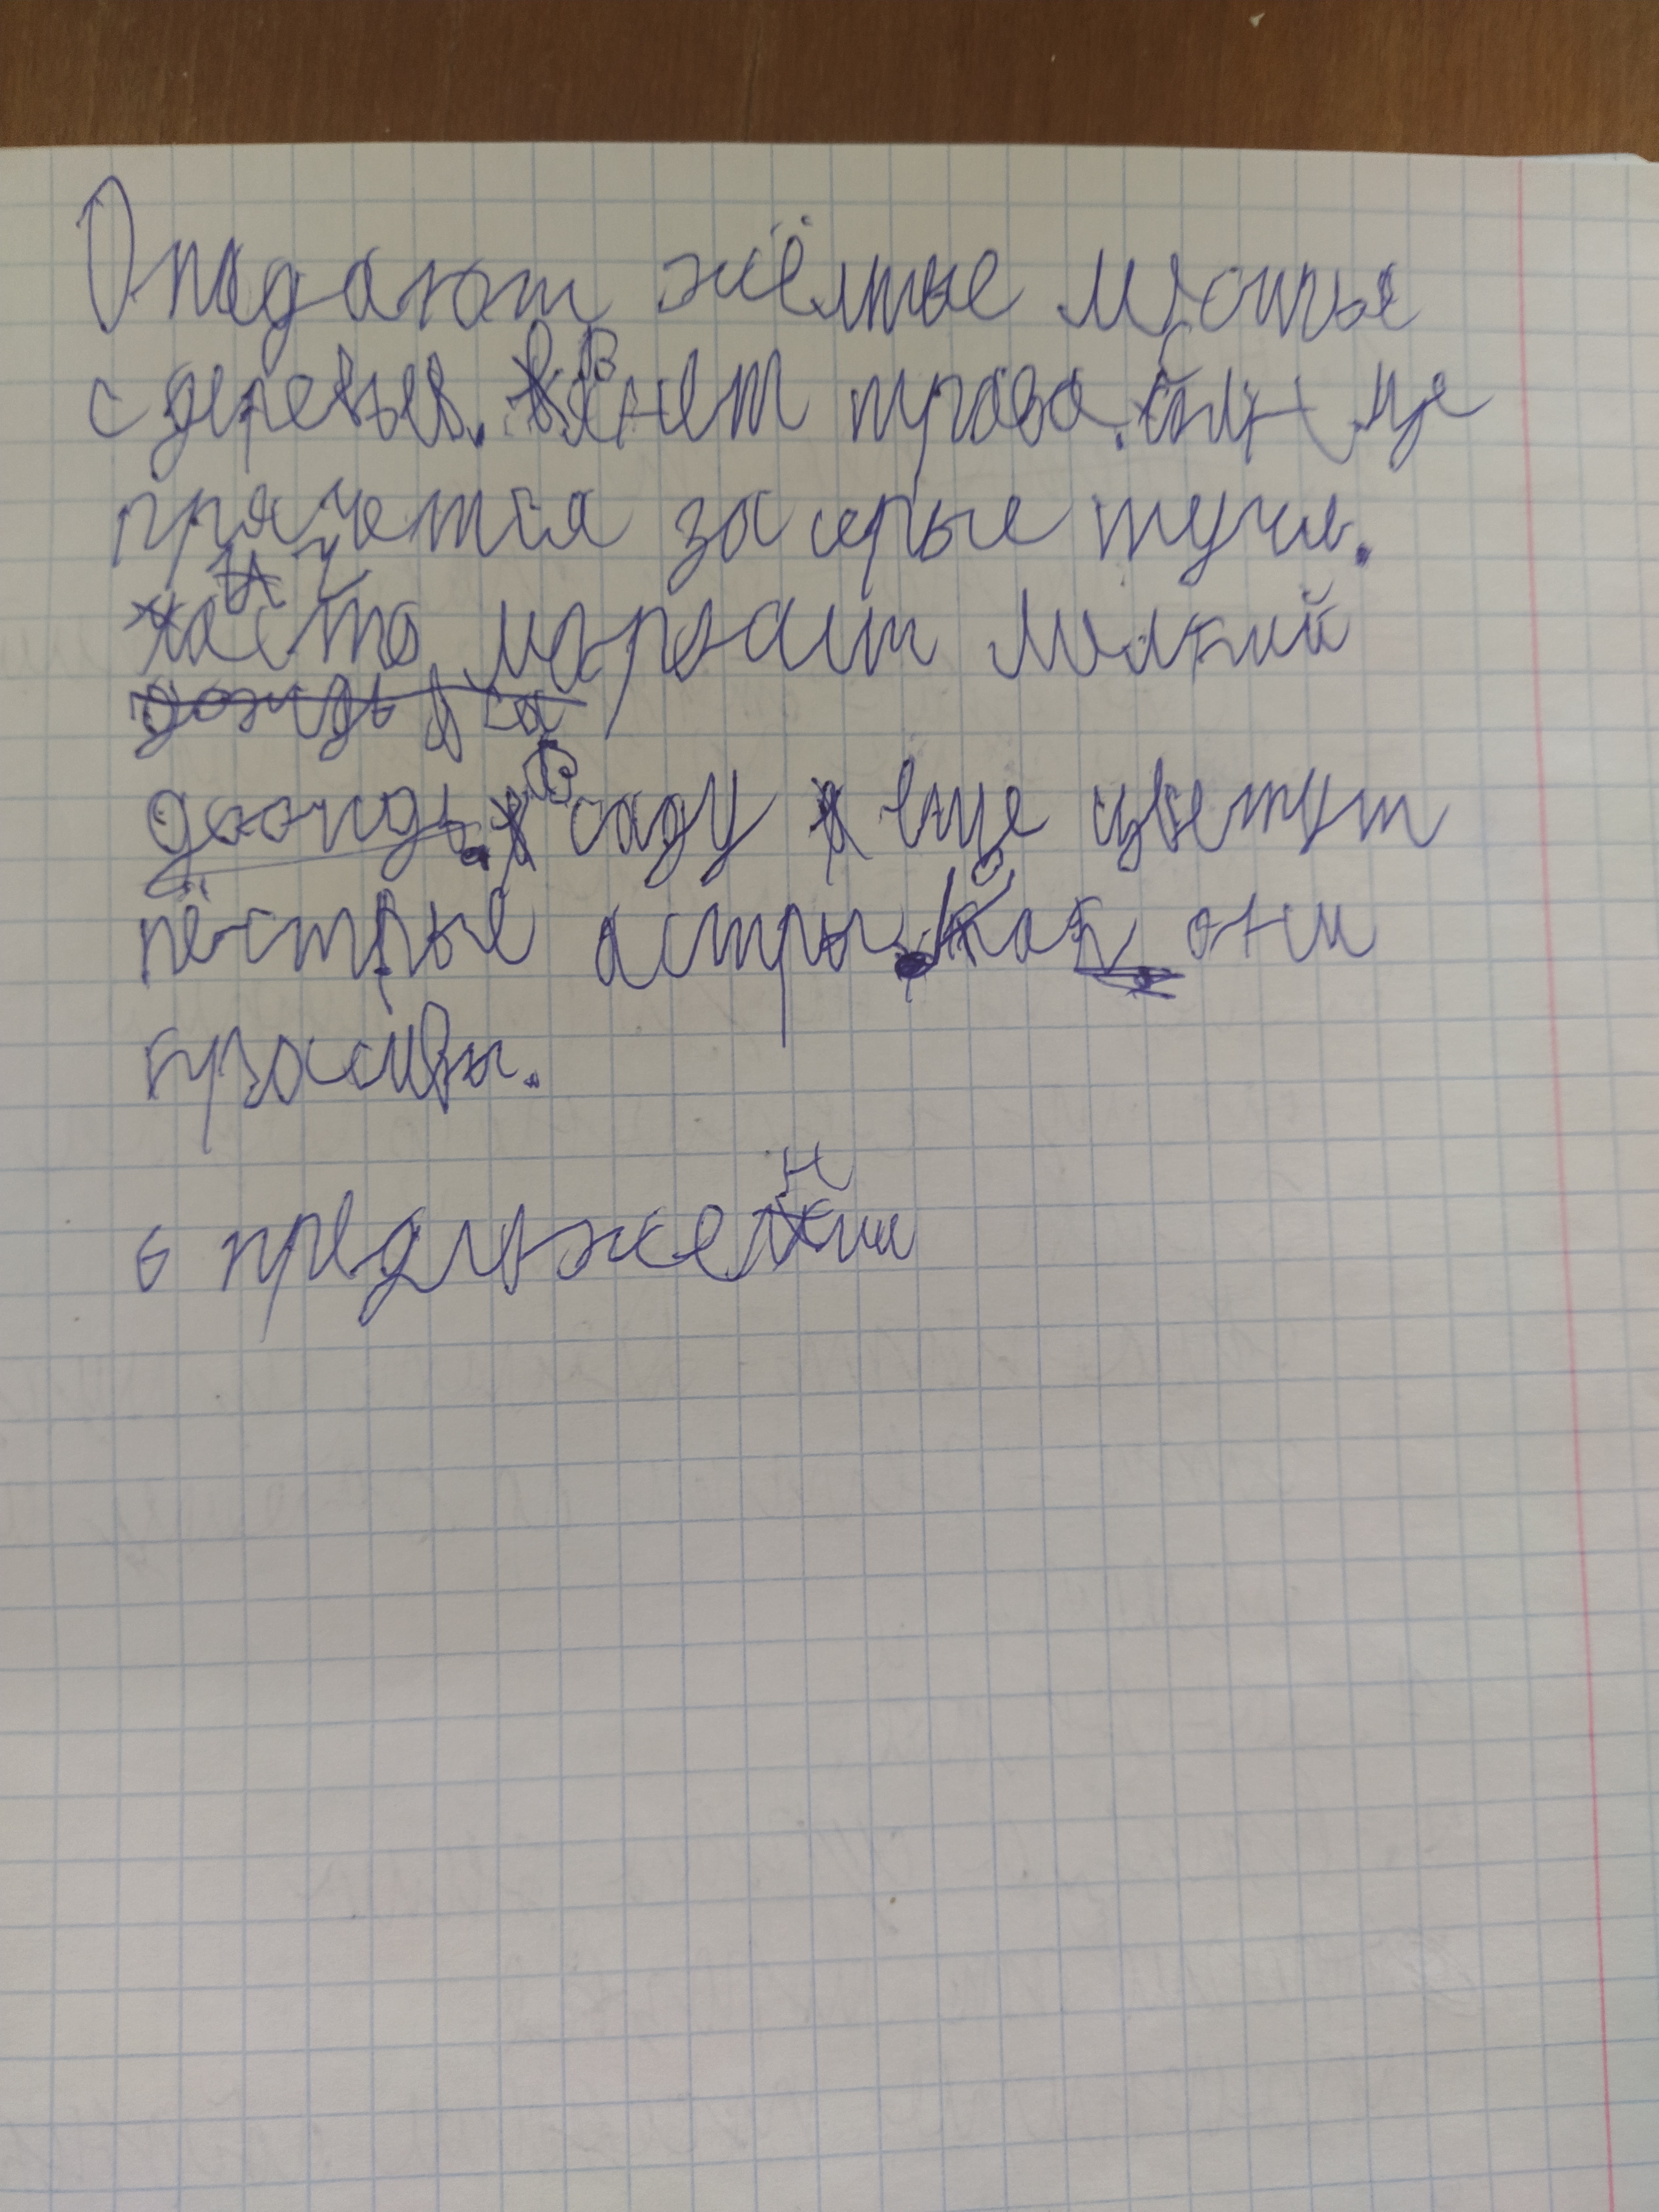 Опадают жёлтые листья
с деревьев. Вянет трава. Солнце
прячется за серые тучи.
Часто моросит мелкий
дождь. В саду еще цветут
пёстрые астры. Как они
красивы.
6 предложений